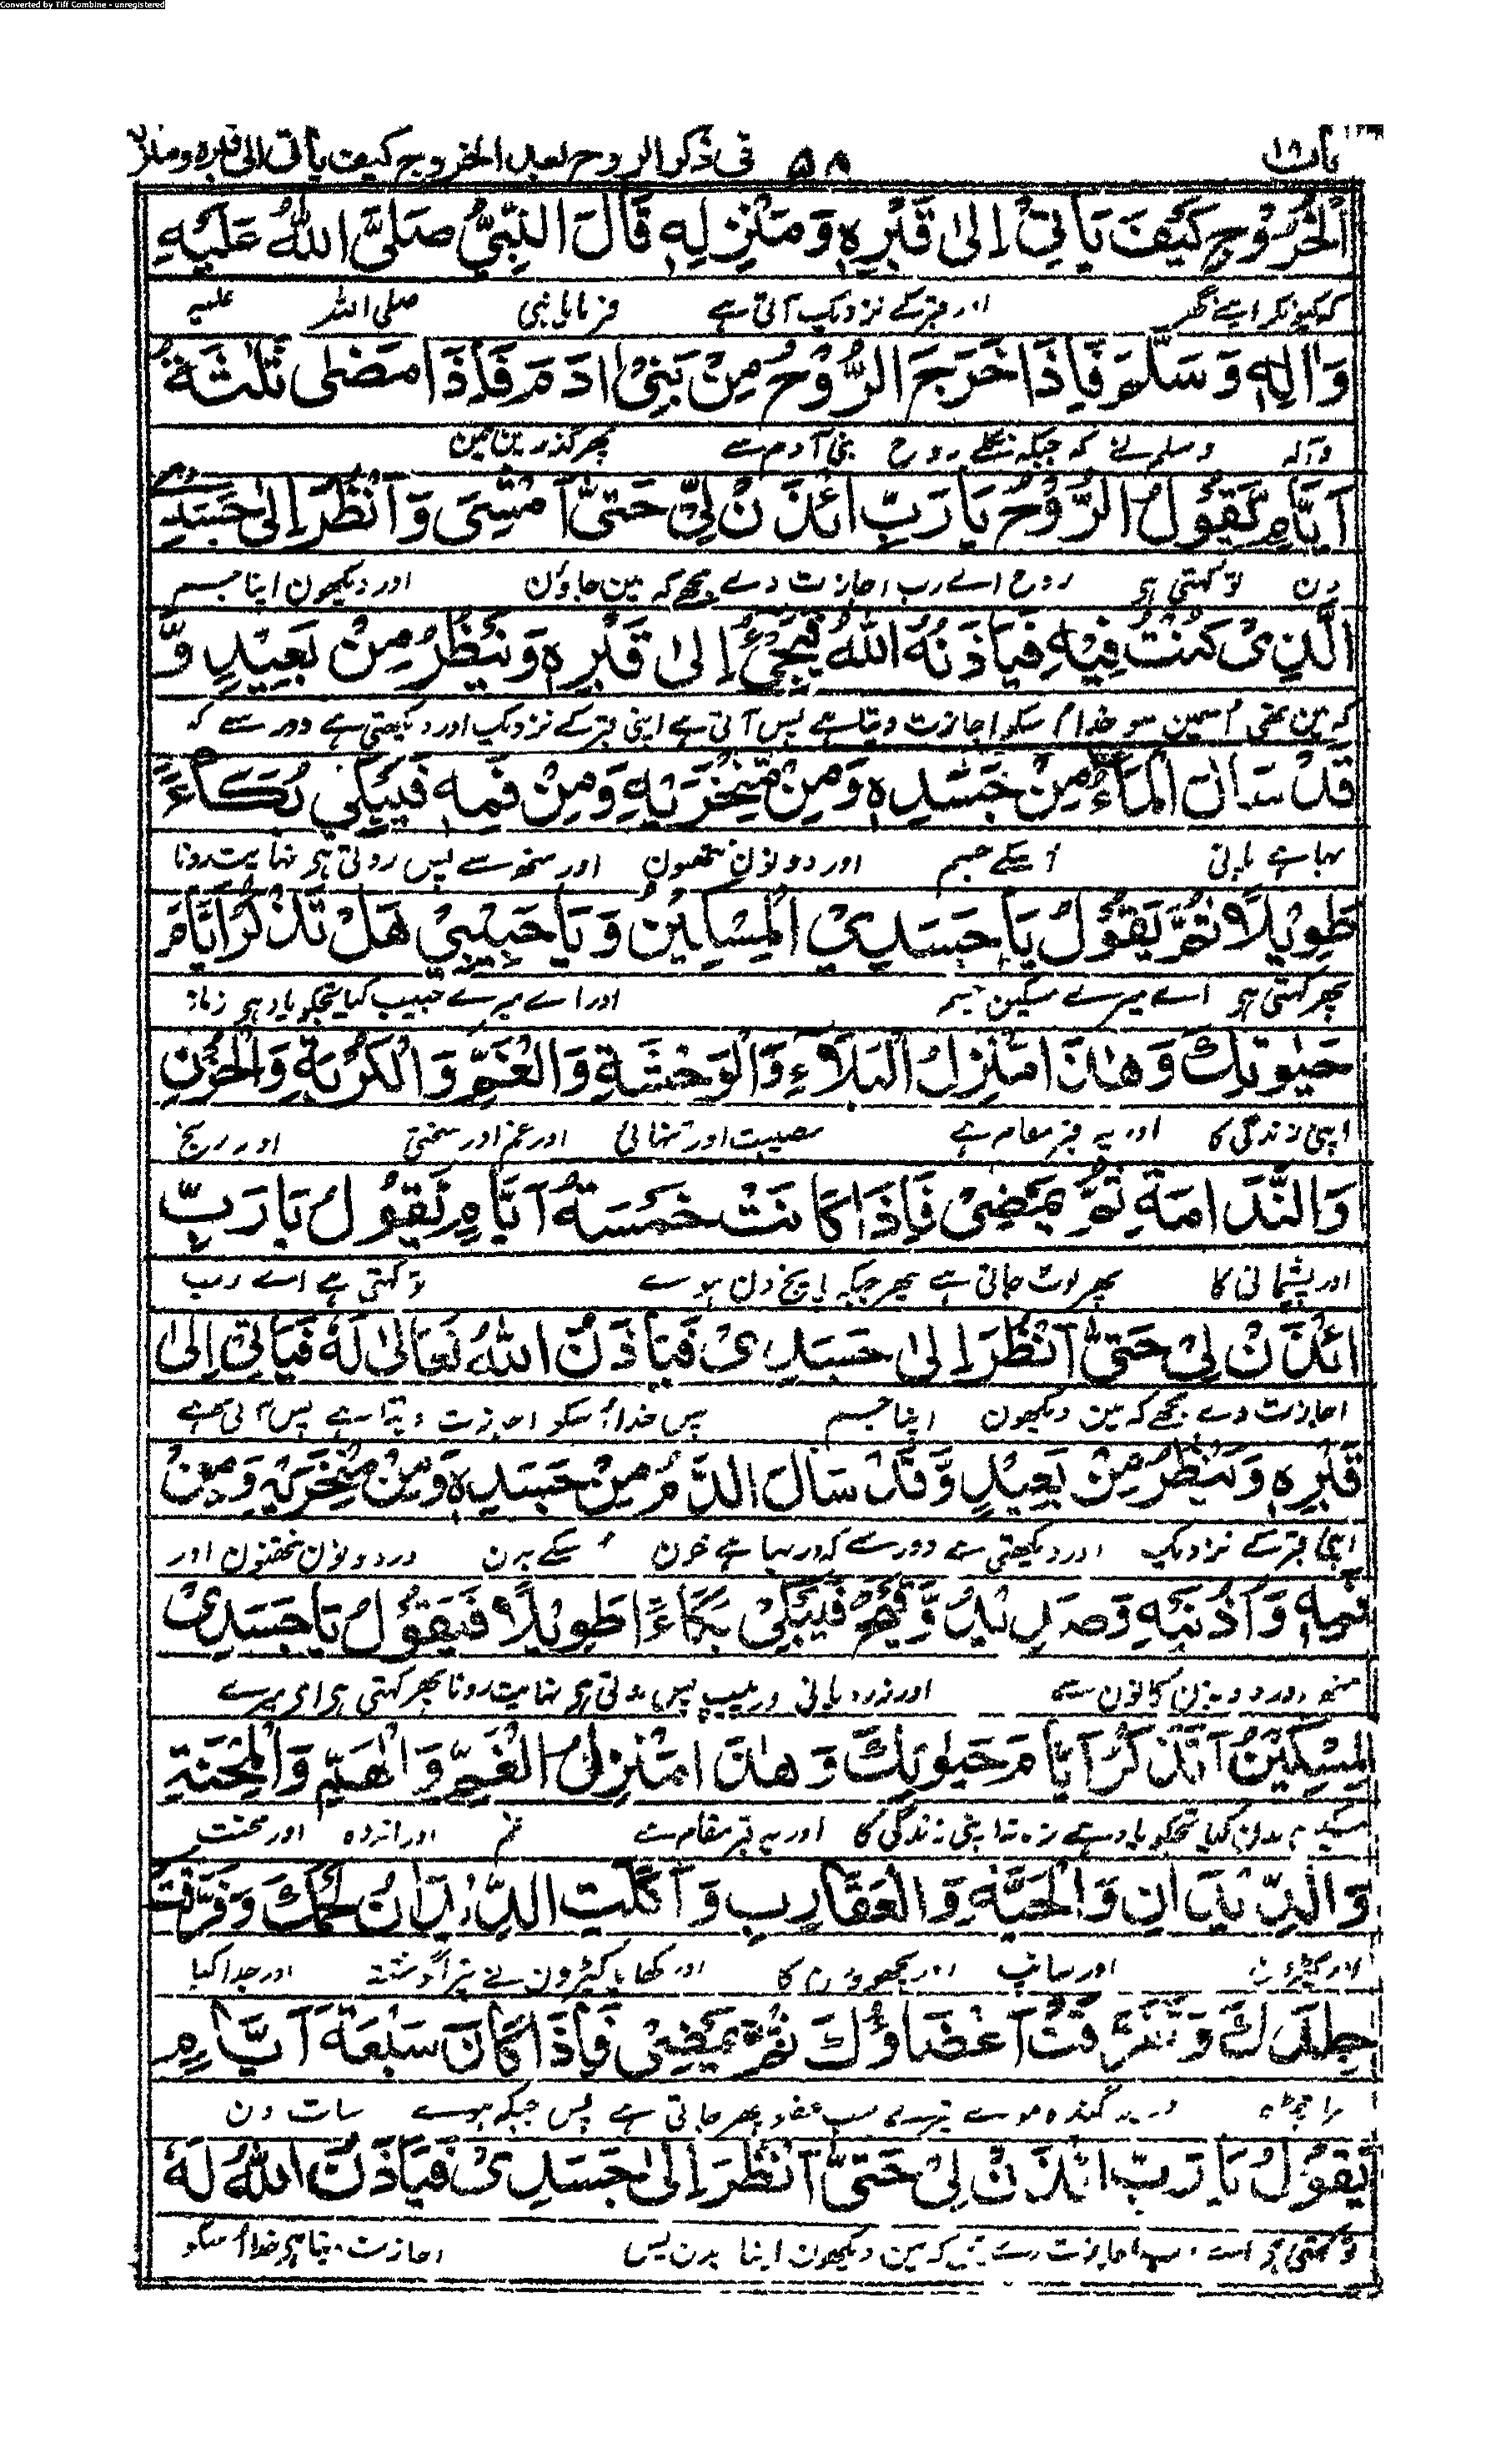 Converted by Tiff Combine - unregistered
باب ۱۸ ۵۸ فی ذکر الروح بعد الخروج کیف یأتی الی قبرہ ومنزلہ
اَلْخُرُوْجِ كَيْفَ يَاْتِيْ اِلٰى قَبْرِهٖ وَمَنْزِلِهٖ قَالَ النَّبِيُّ صَلَّى اللّٰهُ عَلَيْهِ
کہ کیونکر اپنے گھر اور قبر کے نزدیک آتی ہے فرمایا نبی صلی اللہ علیہ
وَاٰلِهٖ وَسَلَّمَ فَاِذَا خَرَجَ الرُّوْحُ مِنْ بَنِيْ اٰدَمَ فَاِذَا مَضٰى ثَلٰثَةُ
وآلہ وسلم نے کہ جبکہ نکلے روح بنی آدم سے پھر گذرین تین
اَيَّامٍ يَقُوْلُ الرُّوْحُ يَا رَبِّ ائْذَنْ لِيْ حَتّٰى اَمْشِيَ وَاَنْظُرَ اِلٰى جَسَدِي
دن تو کہتی ہی روح اے رب اجازت دے مجھے کہ مین جاؤن اور دیکھون اپنا جسم
الَّذِيْ كُنْتُ فِيْهِ فَيَاْذَنُهُ اللّٰهُ فَيَجِيْءُ اِلٰى قَبْرِهٖ وَيَنْظُرُ مِنْ بَعِيْدٍ وَّ
کہ مین تھی اسمین سو خدا اسکو اجازت دیتا ہے پس آتی ہے اپنی قبر کے نزدیک اور دیکھتی ہے دور سے کہ
قَدْ سَالَ الْمَآءُ مِنْ جَسَدِهٖ وَمِنْ مَّنْخَرَيْهِ وَمِنْ فَمِهٖ فَيَبْكِيْ بُكَآءً
بہا ہے پانی اسکے جسم اور دونون نتھون اور منھ سے پس روتی ہی نہایت رونا
طَوِيْلًا ثُمَّ يَقُوْلُ يَا جَسَدِيْ الْمِسْكِيْنُ وَيَا حَبِيْبِيْ هَلْ تَذْكُرُ اَيَّامَ
پھر کہتی ہی اے میرے مسکین جسم اور اے میرے حبیب کیا تجکو یاد ہی زمانہ
حَيٰوتِكَ وَهٰذَا مَنْزِلُ الْبَلَآءِ وَالْوَحْشَةِ وَالْغَمِّ وَالْكُرْبَةِ وَالْحُزْنِ
اپنی زندگی کا اور یہ قبر مقام ہے مصیبت اور تنہائی اور غم اور سختی اور رنج
وَالنَّدَامَةِ ثُمَّ يَمْضِيْ فَاِذَا كَانَتْ خَمْسَةُ اَيَّامٍ يَقُوْلُ يَا رَبِّ
اور پشیمانی کا پھر لوٹ جاتی ہے پھر جبکہ پانچ دن ہوے تو کہتی ہے اے رب
ائْذَنْ لِيْ حَتّٰى اَنْظُرَ اِلٰى جَسَدِيْ فَيَاْذَنُ اللّٰهُ تَعَالٰى لَهٗ فَيَاْتِيْ اِلٰى
اجازت دے مجھے کہ مین دیکھون اپنا جسم پس خدا اسکو اجازت دیتا ہے پس آتی ہے
قَبْرِهٖ وَيَنْظُرُ مِنْ بَعِيْدٍ وَّقَدْ سَالَ الدَّمُ مِنْ جَسَدِهٖ وَمِنْ مَنْخَرَيْهِ وَمِنْ
اپنی قبر کے نزدیک اور دیکھتی ہے دور سے کہ بہا ہے خون اسکے بدن اور دونون نتھنون اور
فَمِهٖ وَاُذُنَيْهِ وَصَدِيْدٌ وَّقَيْحٌ فَيَبْكِيْ بُكَاءً طَوِيْلًا فَيَقُوْلُ يَا جَسَدِيْ
منھ اور دونون کانون سے اور زرد پانی اور پیپ پس روتی ہی نہایت رونا پھر کہتی ہی ای میرے
الْمِسْكِيْنُ اَتَذْكُرُ اَيَّامَ حَيٰوتِكَ وَهٰذَا مَنْزِلُ الْغَمِّ وَالْهَمِّ وَالْمِحْنَةِ
بدن کیا تجکو یاد ہے زمانہ اپنی زندگی کا اور یہ قبر مقام ہے غم اور اندوہ اور محنت
وَالدِّيْدَانِ وَالْحَيَّةِ وَالْعَقَارِبِ وَاَكَلَتِ الدِّيْدَانُ لَحْمَكَ وَفَرَّقَتْ
اور کیڑون اور سانپ اور بچھوون کا اور کھایا کیڑون نے تیرا گوشت اور جدا کیا
جِلْدَكَ وَتَفَرَّقَتْ اَعْضَاؤُكَ ثُمَّ يَمْضِيْ فَاِذَا كَانَ سَبْعَةُ اَيَّامٍ
پراگندہ ہوے تیرے سب عضو پھر جاتی ہے پس جبکہ ہوے سات دن
يَقُوْلُ يَا رَبِّ ائْذَنْ لِيْ حَتّٰى اَنْظُرَ اِلٰى جَسَدِيْ فَيَاْذَنُ اللّٰهُ لَهٗ
تو کہتی ہی اے رب اجازت دے کہ مین دیکھون اپنا بدن پس اجازت دیتا ہی خدا اسکو